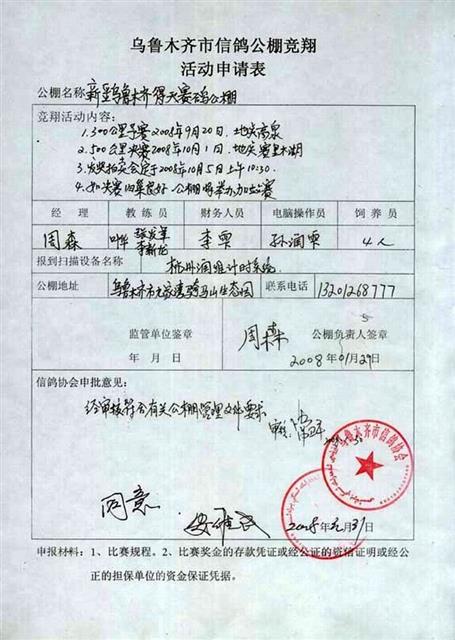 乌鲁木齐市信鸽公棚竞翔
活动申请表
公棚名称 新疆乌鲁木齐得天赛鸽公棚
竞翔活动内容：
1.300公里予赛2008年9月20日，地点高泉
2.500公里决赛2008年10月1日，地点赛里木湖
3.发奖拍卖会定于2008年10月5日上午10:30.
4.如决赛归巢良好公棚将举办加站赛
经 理 教 练 员 财务人员 电脑操作员 饲 养 员
周森 李雪 孙润雪 4人
报到扫描设备名称 杭州润恒计时系统.
公棚地址 乌鲁木齐市 骑马山生态园 联系电话 13201268777
监管单位签章 周森 公棚负责人签章
年 月 日 2008年01月29日
信鸽协会申批意见：
经审核符合有关公棚管理文件要求
乌鲁木齐市信鸽协会
同意
2008年元月31日
申报材料：1、比赛规程。2、比赛奖金的存款凭证或经公证的资信证明或经公
正的担保单位的资金保证凭据。